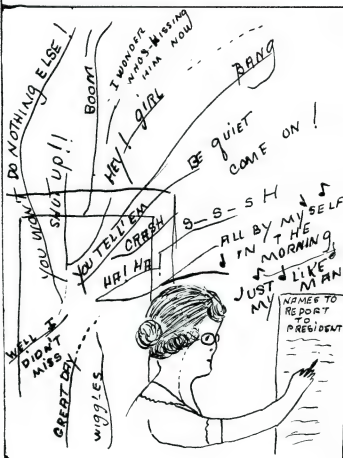 YOU DIDN'T DO NOTHING ELSE!
SHUT UP!!
BOOM
I WONDER
WHO'S KISSING
HIM NOW
HEY! GIRL
BANG
BE QUIET
COME ON!
YOU TELL'EM
CRASH
HA! HA!
S-S-SH
ALL BY MYSELF
IN THE
MORNING
JUST LIKE
MY MAN
WELL I
DIDN'T
MISS
GREAT DAY
WIGGLES
NAMES TO
REPORT
TO
PRESIDENT